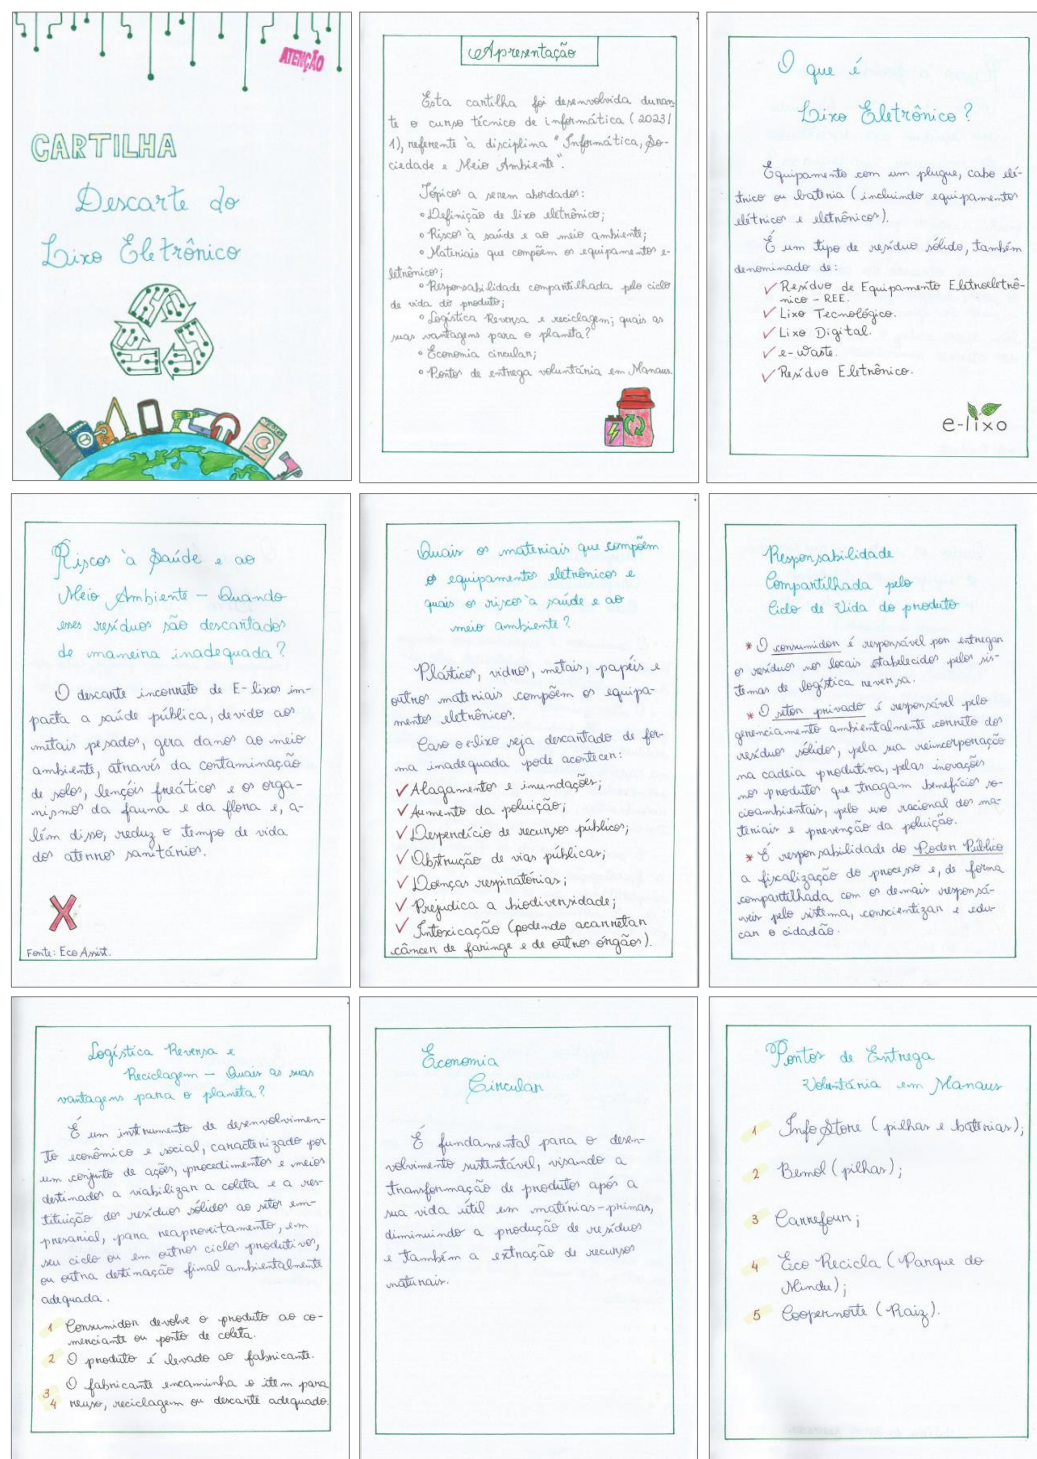 ATENÇÃO
CARTILHA
Descarte do
Lixo Eletrônico
Apresentação
Esta cartilha foi desenvolvida duran-
te o curso técnico de informática (2023/
1), referente à disciplina "Informática, So-
ciedade e Meio Ambiente".
Tópicos a serem abordados:
Definição de lixo eletrônico;
Riscos à saúde e ao meio ambiente;
Materiais que compõem os equipamentos e-
letrônicos;
Responsabilidade compartilhada pelo ciclo
de vida do produto;
Logística Reversa e reciclagem; quais as
suas vantagens para o planeta?
Economia circular;
Pontos de entrega voluntária em Manaus
O que é
Lixo Eletrônico?
Equipamento com um plugue, cabo elé-
trico ou bateria (incluindo equipamentos
elétricos e eletrônicos).
É um tipo de resíduo sólido, também
denominado de:
✓ Resíduo de Equipamento Eletroeletrô-
nico - REE.
✓ Lixo Tecnológico.
✓ Lixo Digital.
✓ e-waste.
✓ Resíduo Eletrônico.
e-lixo
Riscos à Saúde e ao
Meio Ambiente - Quando
esses resíduos são descartados
de maneira inadequada?
O descarte incorreto de E-lixos im-
pacta a saúde pública, devido aos
metais pesados, gera danos ao meio
ambiente, através da contaminação
de solos, lençóis freáticos e os orga-
nismos da fauna e da flora e, a-
lém disso, reduz o tempo de vida
dos aterros sanitários.
Fonte: Eco Assist.
Quais os materiais que compõem
os equipamentos eletrônicos e
quais os riscos à saúde e ao
meio ambiente?
Plásticos, vidros, metais, papéis e
outros materiais compõem os equipa-
mentos eletrônicos.
Caso o e-lixo seja descartado de for-
ma inadequada pode acontecer:
✓ Alagamentos e inundações;
✓ Aumento da poluição;
✓ Dispendício de recursos públicos;
✓ Obstrução de vias públicas;
✓ Doenças respiratórias;
✓ Prejudica a biodiversidade;
✓ Intoxicação (podendo acarretar
câncer de faringe e de outros órgãos).
Responsabilidade
Compartilhada pelo
Ciclo de Vida do produto
* O consumidor é responsável por entregar
os resíduos nos locais estabelecidos pelos sis-
temas de logística reversa.
* O setor privado é responsável pelo
gerenciamento ambientalmente correto dos
resíduos sólidos, pela sua reincorporação
na cadeia produtiva, pelas inovações
nos produtos que tragam benefícios so-
cioambientais, pelo uso racional dos ma-
teriais e prevenção da poluição.
* É responsabilidade do Poder Público
a fiscalização do processo e, de forma
compartilhada com os demais responsá-
veis pelo sistema, conscientizar e edu-
car o cidadão.
Logística Reversa e
Reciclagem - Quais as suas
vantagens para o planeta?
É um instrumento de desenvolvimen-
to econômico e social, caracterizado por
um conjunto de ações, procedimentos e meios
destinados a viabilizar a coleta e a res-
tituição dos resíduos sólidos ao setor em-
presarial, para reaproveitamento, em
seu ciclo ou em outros ciclos produtivos,
ou outra destinação final ambientalmente
adequada.
1 Consumidor devolve o produto ao co-
merciante ou ponto de coleta.
2 O produto é levado ao fabricante.
3 O fabricante encaminha o item para
4 reuso, reciclagem ou descarte adequado.
Economia
Circular
É fundamental para o desen-
volvimento sustentável, visando a
transformação de produtos após a
sua vida útil em matérias-primas,
diminuindo a produção de resíduos
e também a extração de recursos
naturais.
Pontos de Entrega
Voluntária em Manaus
1 Info Store (pilhas e baterias);
2 Bemol (pilhas);
3 Carrefour;
4 Eco Recicla (Parque do
Mindu);
5 Coopernorte (Raiz).